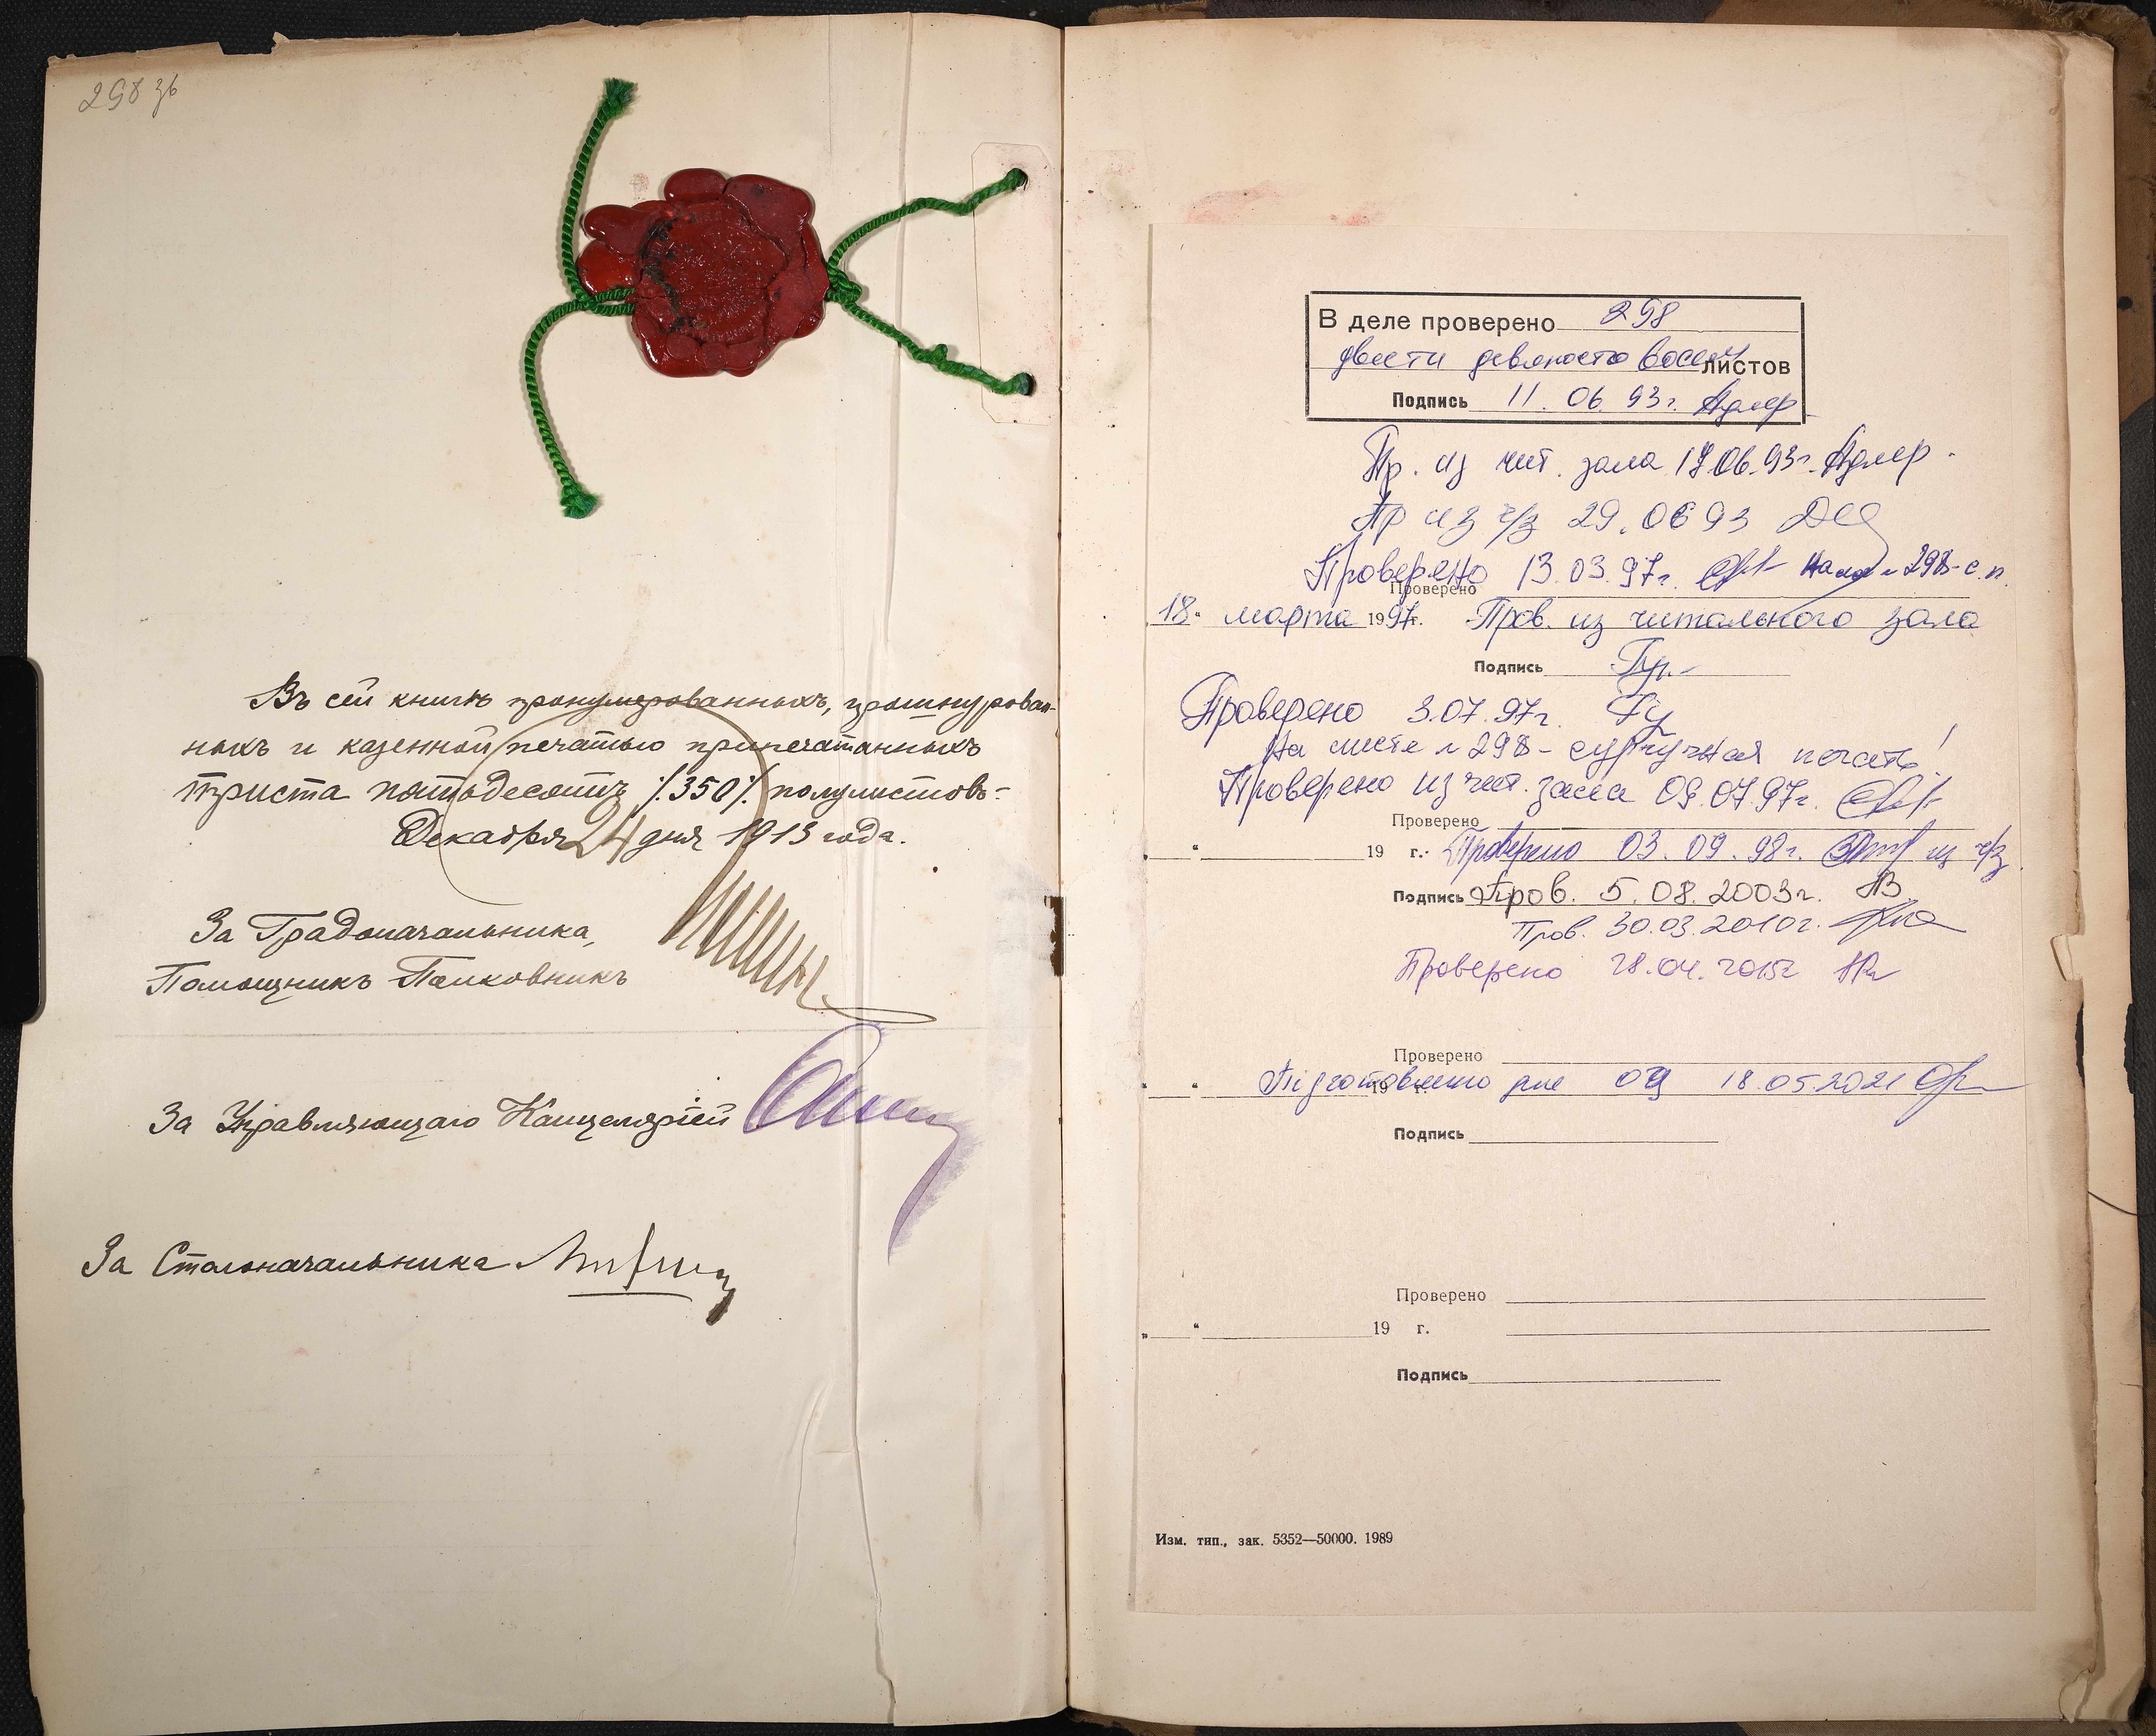 298 зв
Въ сей книгѣ пронумерованныхъ, прошнурован-
ныхъ и казенной печатью припечатанныхъ
триста пятьдесятъ /.350/. полулистовъ-
Декабря 24 дня 1913 года.
За Градоначальника,
Помощникъ Полковникъ
За Управляющаго Канцеляріей
За Столоначальника
В деле проверено 298
двести девяносто восем листов
Подпись 11.06.93г. Адлер
Пр. из чит. зала 17.06.93г. Адлер.
Пр из ч/з 29.06 93
Проверено 13.03.97г. На л. 298-с.п.
Проверено
18 марта 1997г. Пров. из читального зала
Подпись
Проверено 3.07.97г.
На листе 298 - сургучная печать!
Проверено из чит. зала 09.07.97г.
Проверено
" " 19 г. Проверено 03.09.98г. из ч/з
Подпись Пров. 5.08.2003г.
Пров. 30.03.2010г.
Проверено 28.04.2015г
Проверено
" " 19 г. Підготовлено для ОЦ 18.05.2021
Подпись
Проверено
" " 19 г.
Подпись
Изм. тип., зак. 5352—50000. 1989